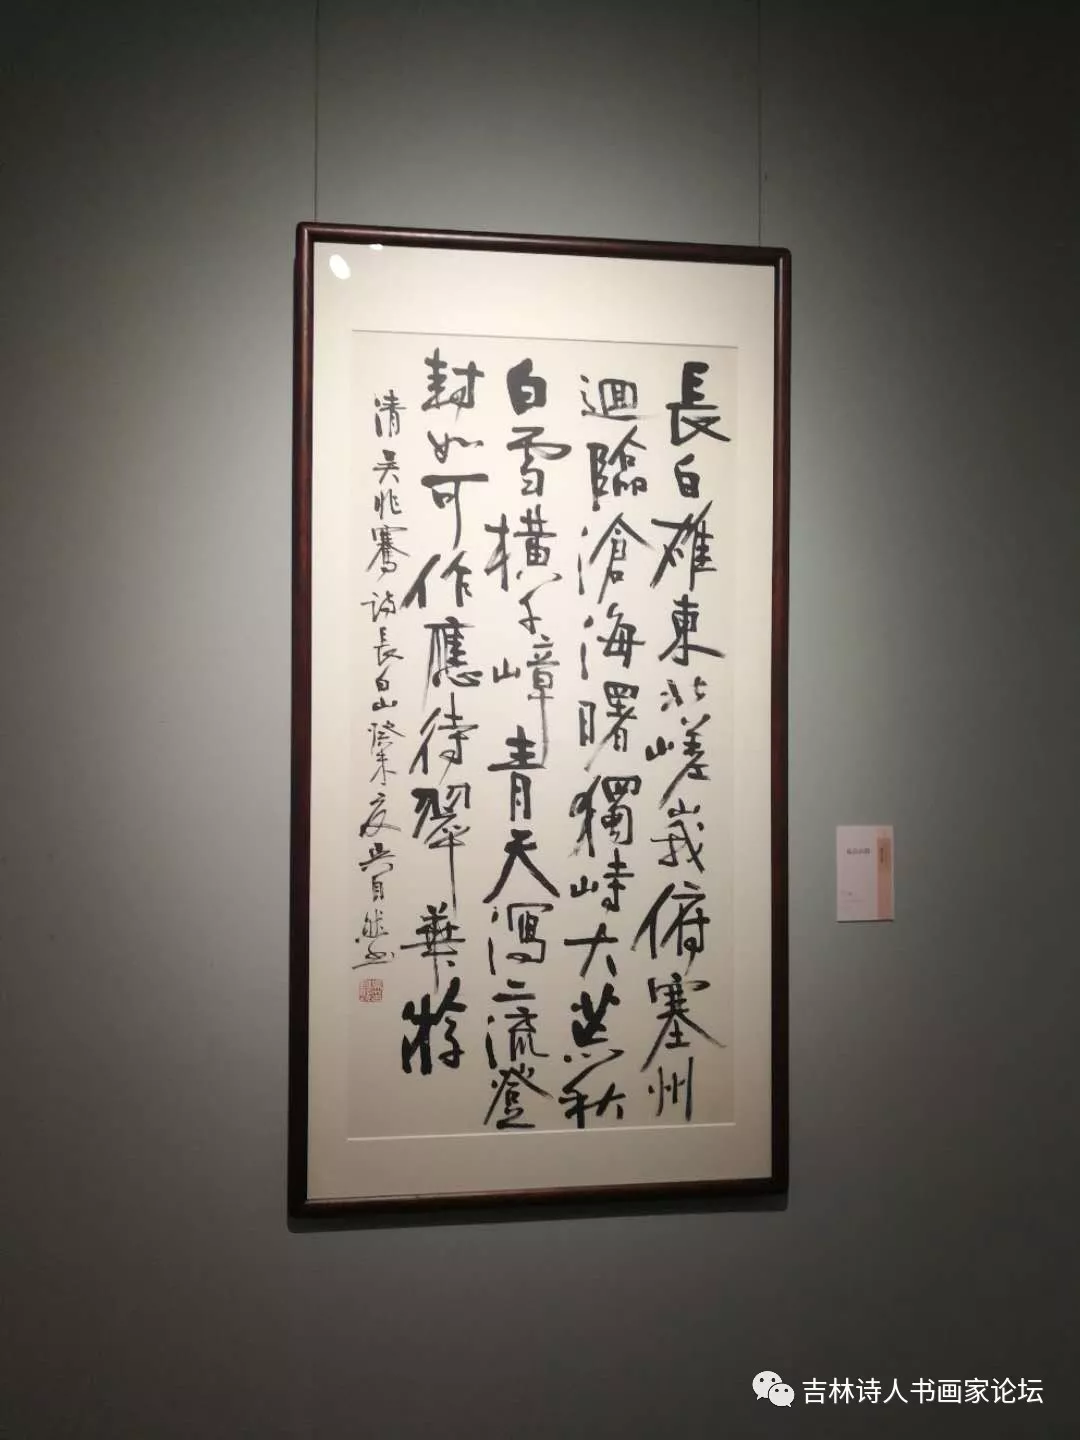 長白雄東北嵯峩俯塞州
迴臨滄海曙獨峙大荒秋
白雪橫千嶂青天瀉二流登
封如可作應待翠華游
清吴兆騫詩長白山癸未夏吴自然书
吉林诗人书画家论坛